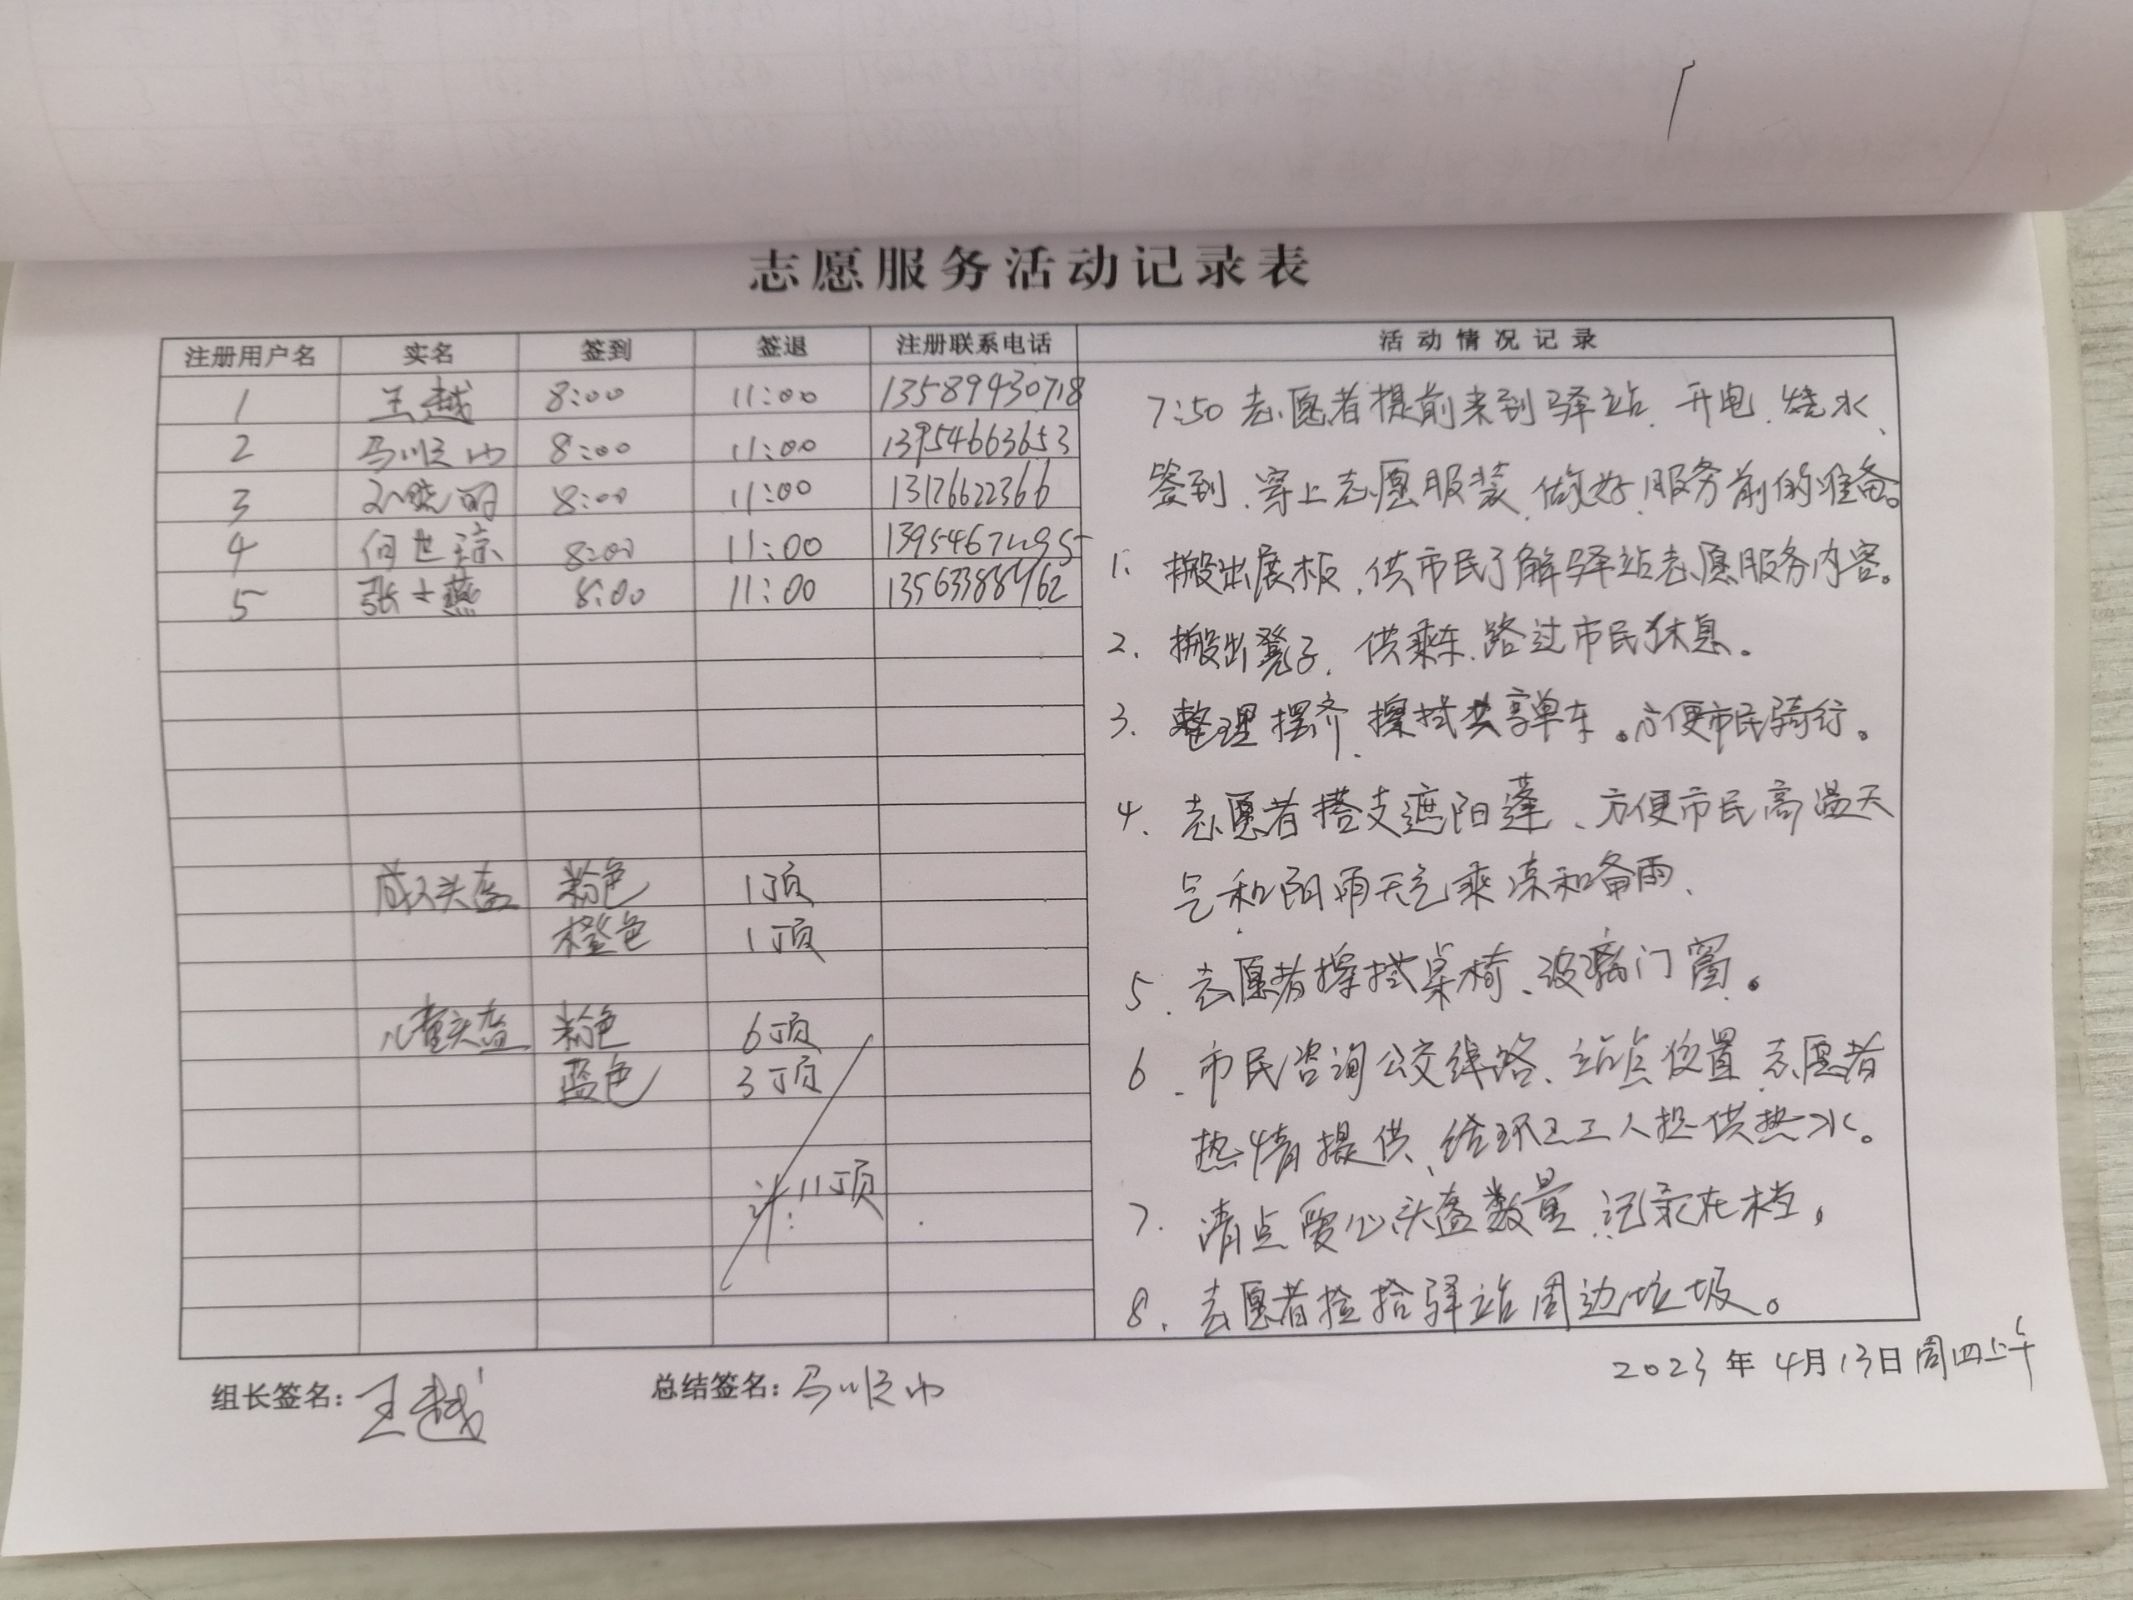 志愿服务活动记录表
注册用户名 实名 签到 签退 注册联系电话 活动情况记录
1 王越 8:00 11:00 13589430718
2 马顺巾 8:00 11:00 13954663653
3 孙晓丽 8:00 11:00 13126622366
4 何世琼 8:00 11:00
5 张士燕 8:00 11:00
成人头盔 粉色 1顶
橙色 1顶
儿童头盔 粉色 6顶
蓝色 3顶
计:11顶
7:50志愿者提前来到驿站、开电、烧水、
签到、穿上志愿服装、做好服务前的准备。
1. 搬出展板,供市民了解驿站志愿服务内容。
2. 搬出凳子,供乘车、路过市民休息。
3. 整理摆齐、擦拭共享单车。方便市民骑行。
4. 志愿者搭支遮阳蓬、方便市民高温天
气和阴雨天气乘凉和备雨、
5. 志愿者擦拭桌椅、玻璃门窗。
6. 市民咨询公交线路、站点位置、志愿者
热情提供、给环卫工人提供热水。
7. 清点爱心头盔数量、记录在档。
8. 志愿者捡拾驿站周边垃圾。
组长签名:王越 总结签名:马顺巾 2023年4月13日周四上午